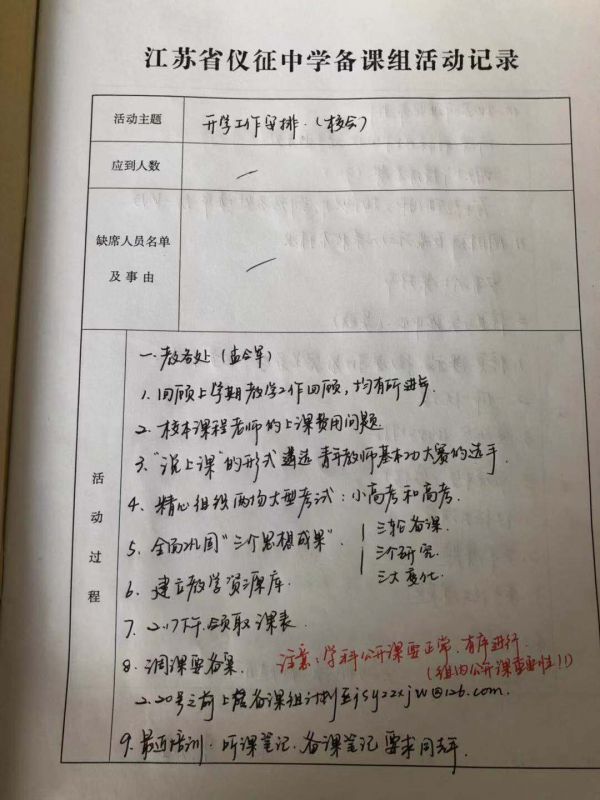 江苏省仪征中学备课组活动记录
活动主题
开学工作安排.(校会)
应到人数
缺席人员名单
及事由
活动过程
一.教务处(孟令军)
1.回顾上学期教学工作回顾,均有所进步.
2.校本课程老师的上课费用问题
3."说上课"的形式遴选青年教师基本功大赛的选手.
4.精心组织两场大型考试:小高考和高考.
5.全面巩固"三个思想成果".
三轮备课
三个研究
三大变化.
6.建立教学资源库.
7.2.17下午领取课表.
8.调课要备案.
注意:学科公开课要正常.有序进行.
(组内公开课重要性!!)
2.20号之前上传备课组计划至jsyzzxjw@126.com.
9.最近培训.听课笔记.备课笔记要求同去年.